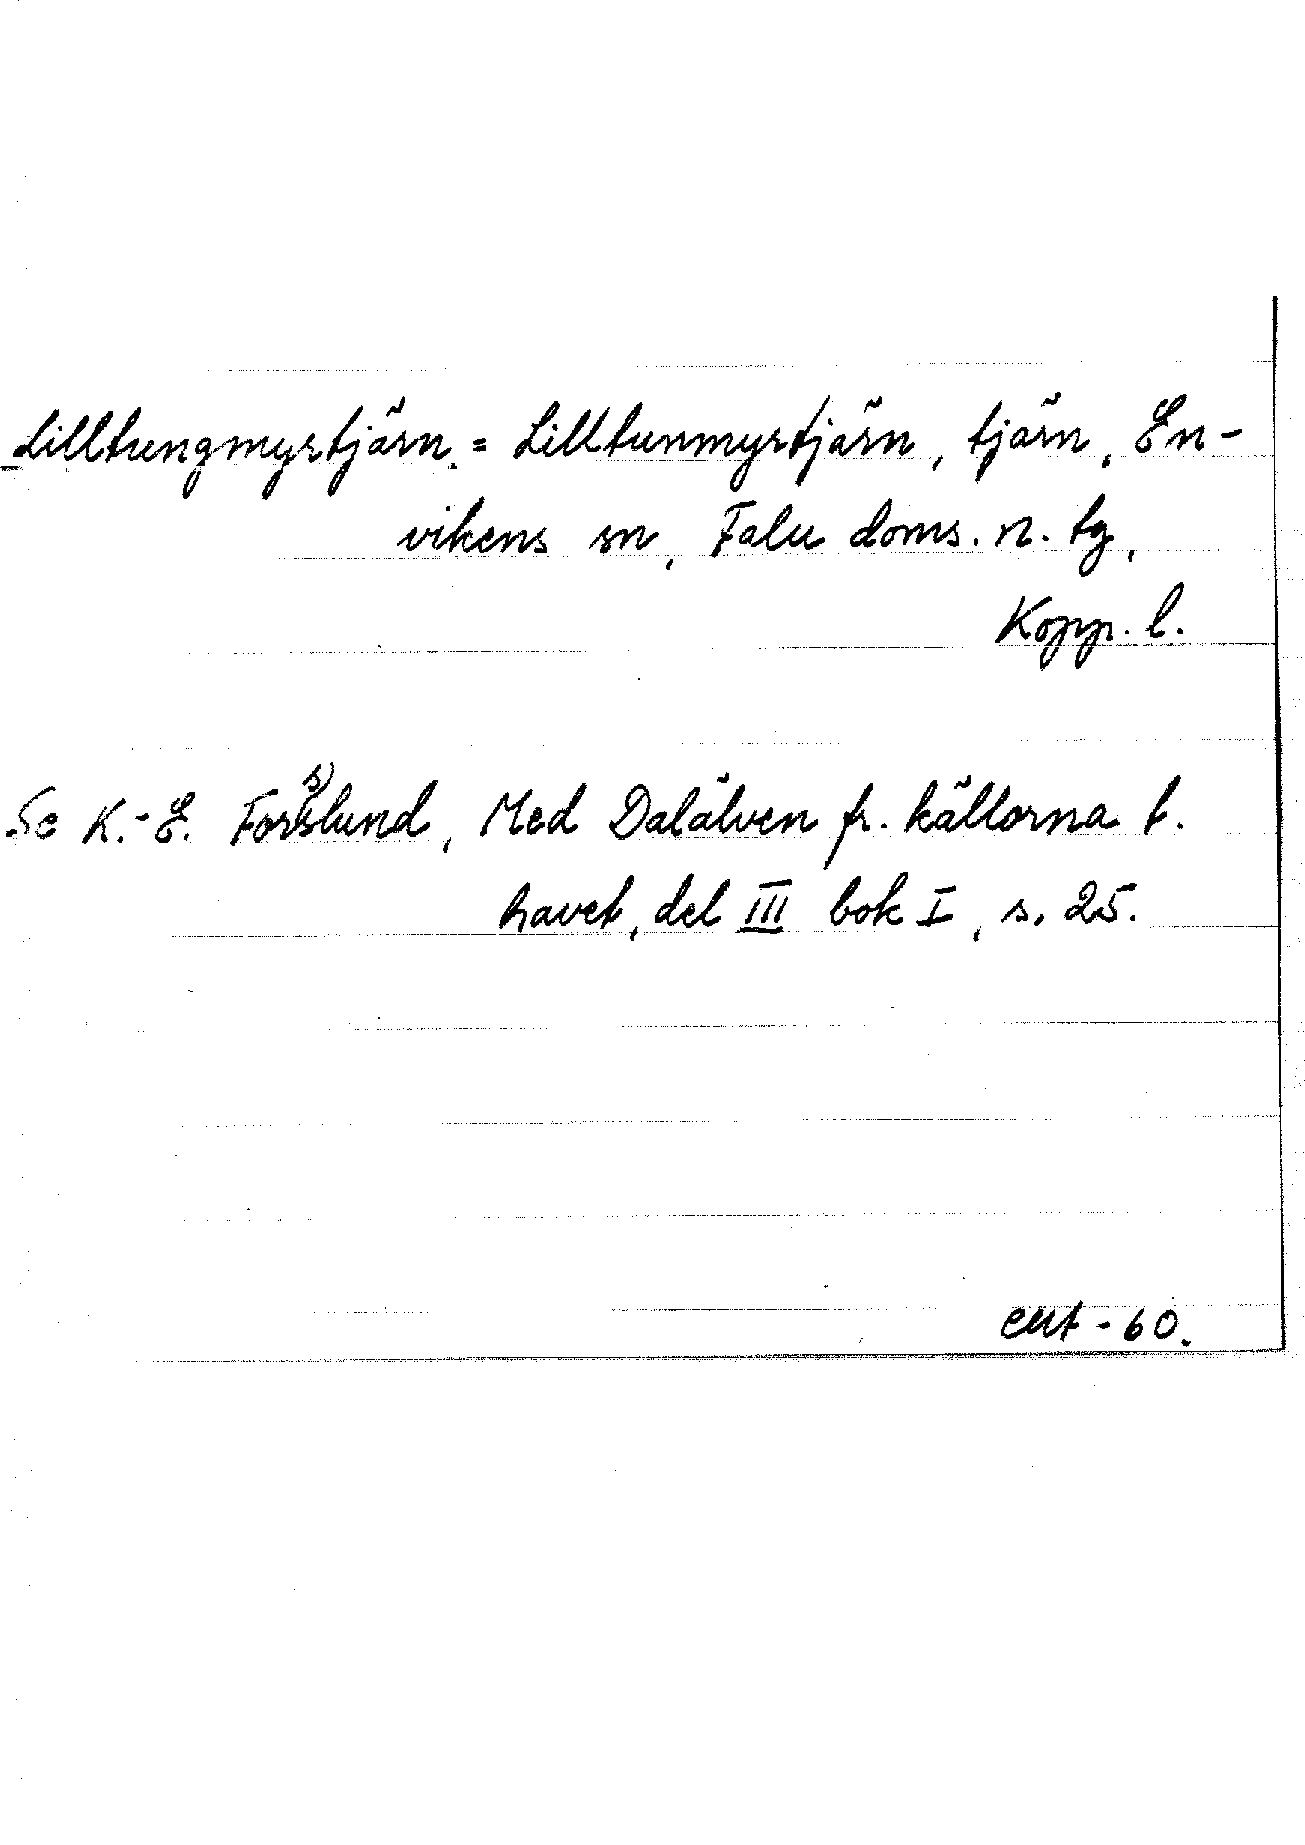 Lilltungmyrtjärn = Lilltunmyrtjärn, tjärn, En-
vikens sn, Falu doms. n. tg,
Kopp. l.
Se K.-E. Forsslund, Med Dalälven fr. källorna t.
havet, del III bok I, s. 25.
-60.